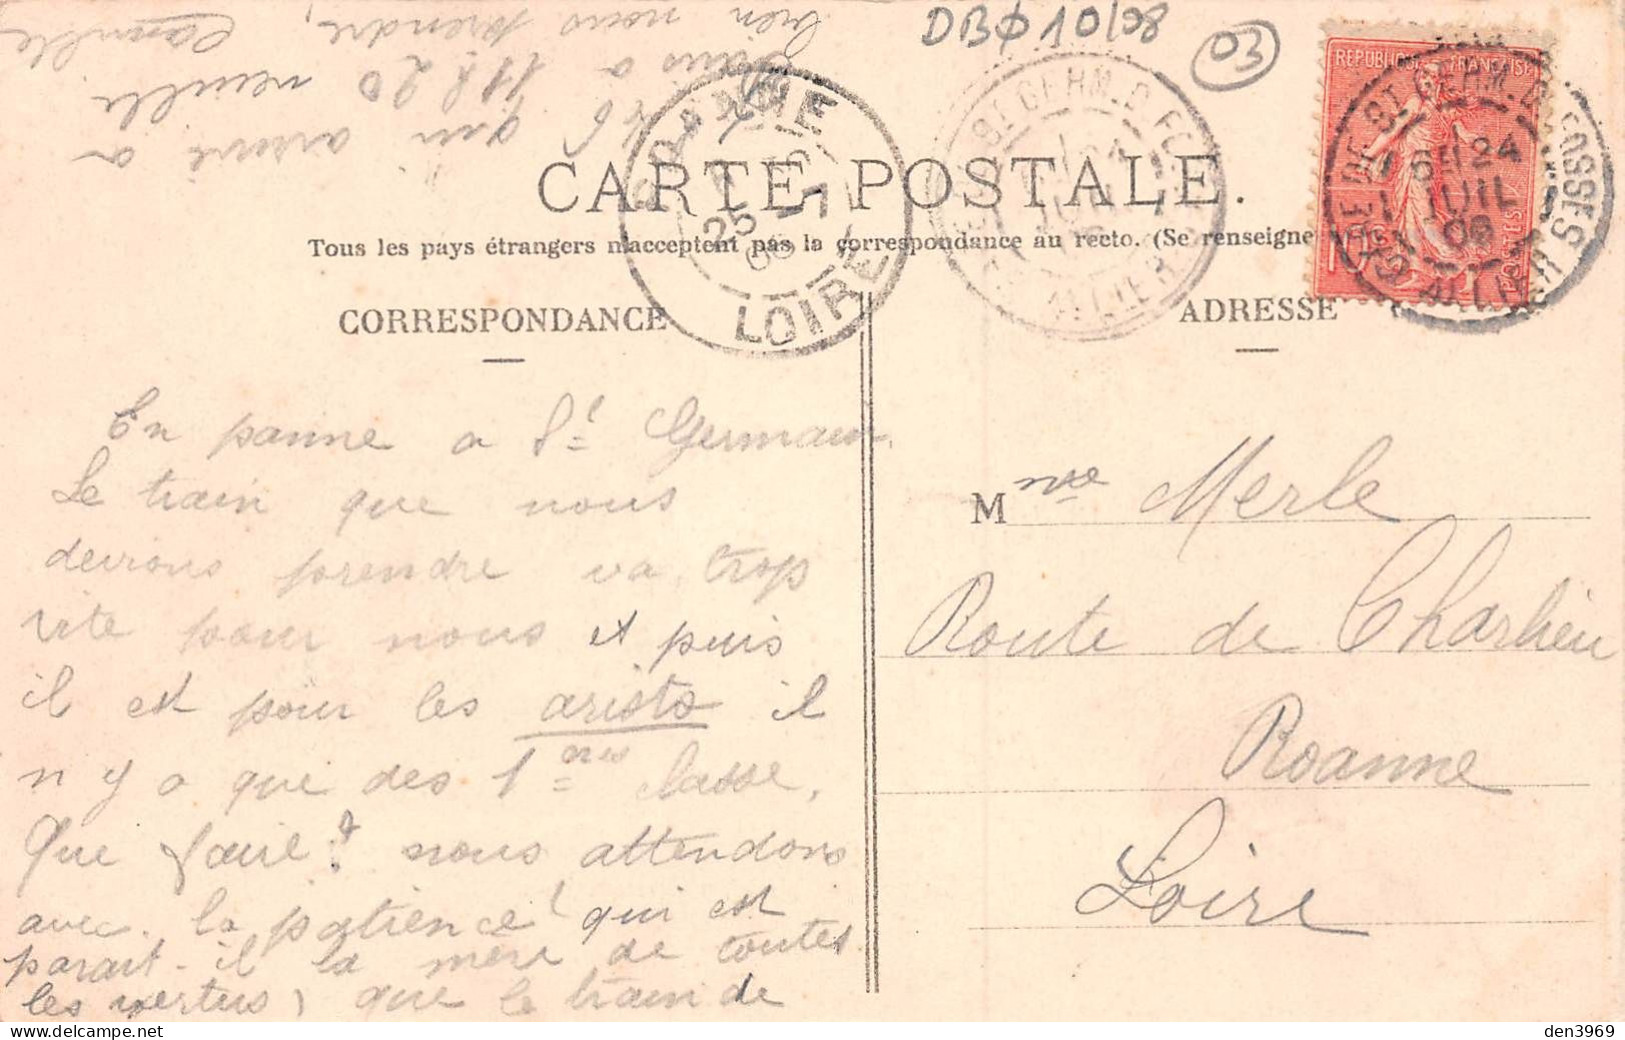 DBØ10/08
03
REPUBLIQUE FRANÇAISE
POSTES
GARE DE ST GERM. D. FOSSES
6H 24
JUIL
06
ALLIER
ROANNE
25 -7
06
LOIRE
CARTE POSTALE.
Tous les pays étrangers n'acceptent pas la correspondance au recto. (Se renseigne
CORRESPONDANCE
ADRESSE
En panne a St Germain.
Le train que nous
devions prendre va trop
vite pour nous et puis
il est pour les aristo il
n y a que des 1ères classe,
Que faire? nous attendons
avec la patience! qui est
parait-il la mère de toutes
les vertus, que le train de
qui arrive a
a 11h20 veuille
bien nous prendre,
Camille
Mme Merle
Route de Charlieu
Roanne
Loire
den3969